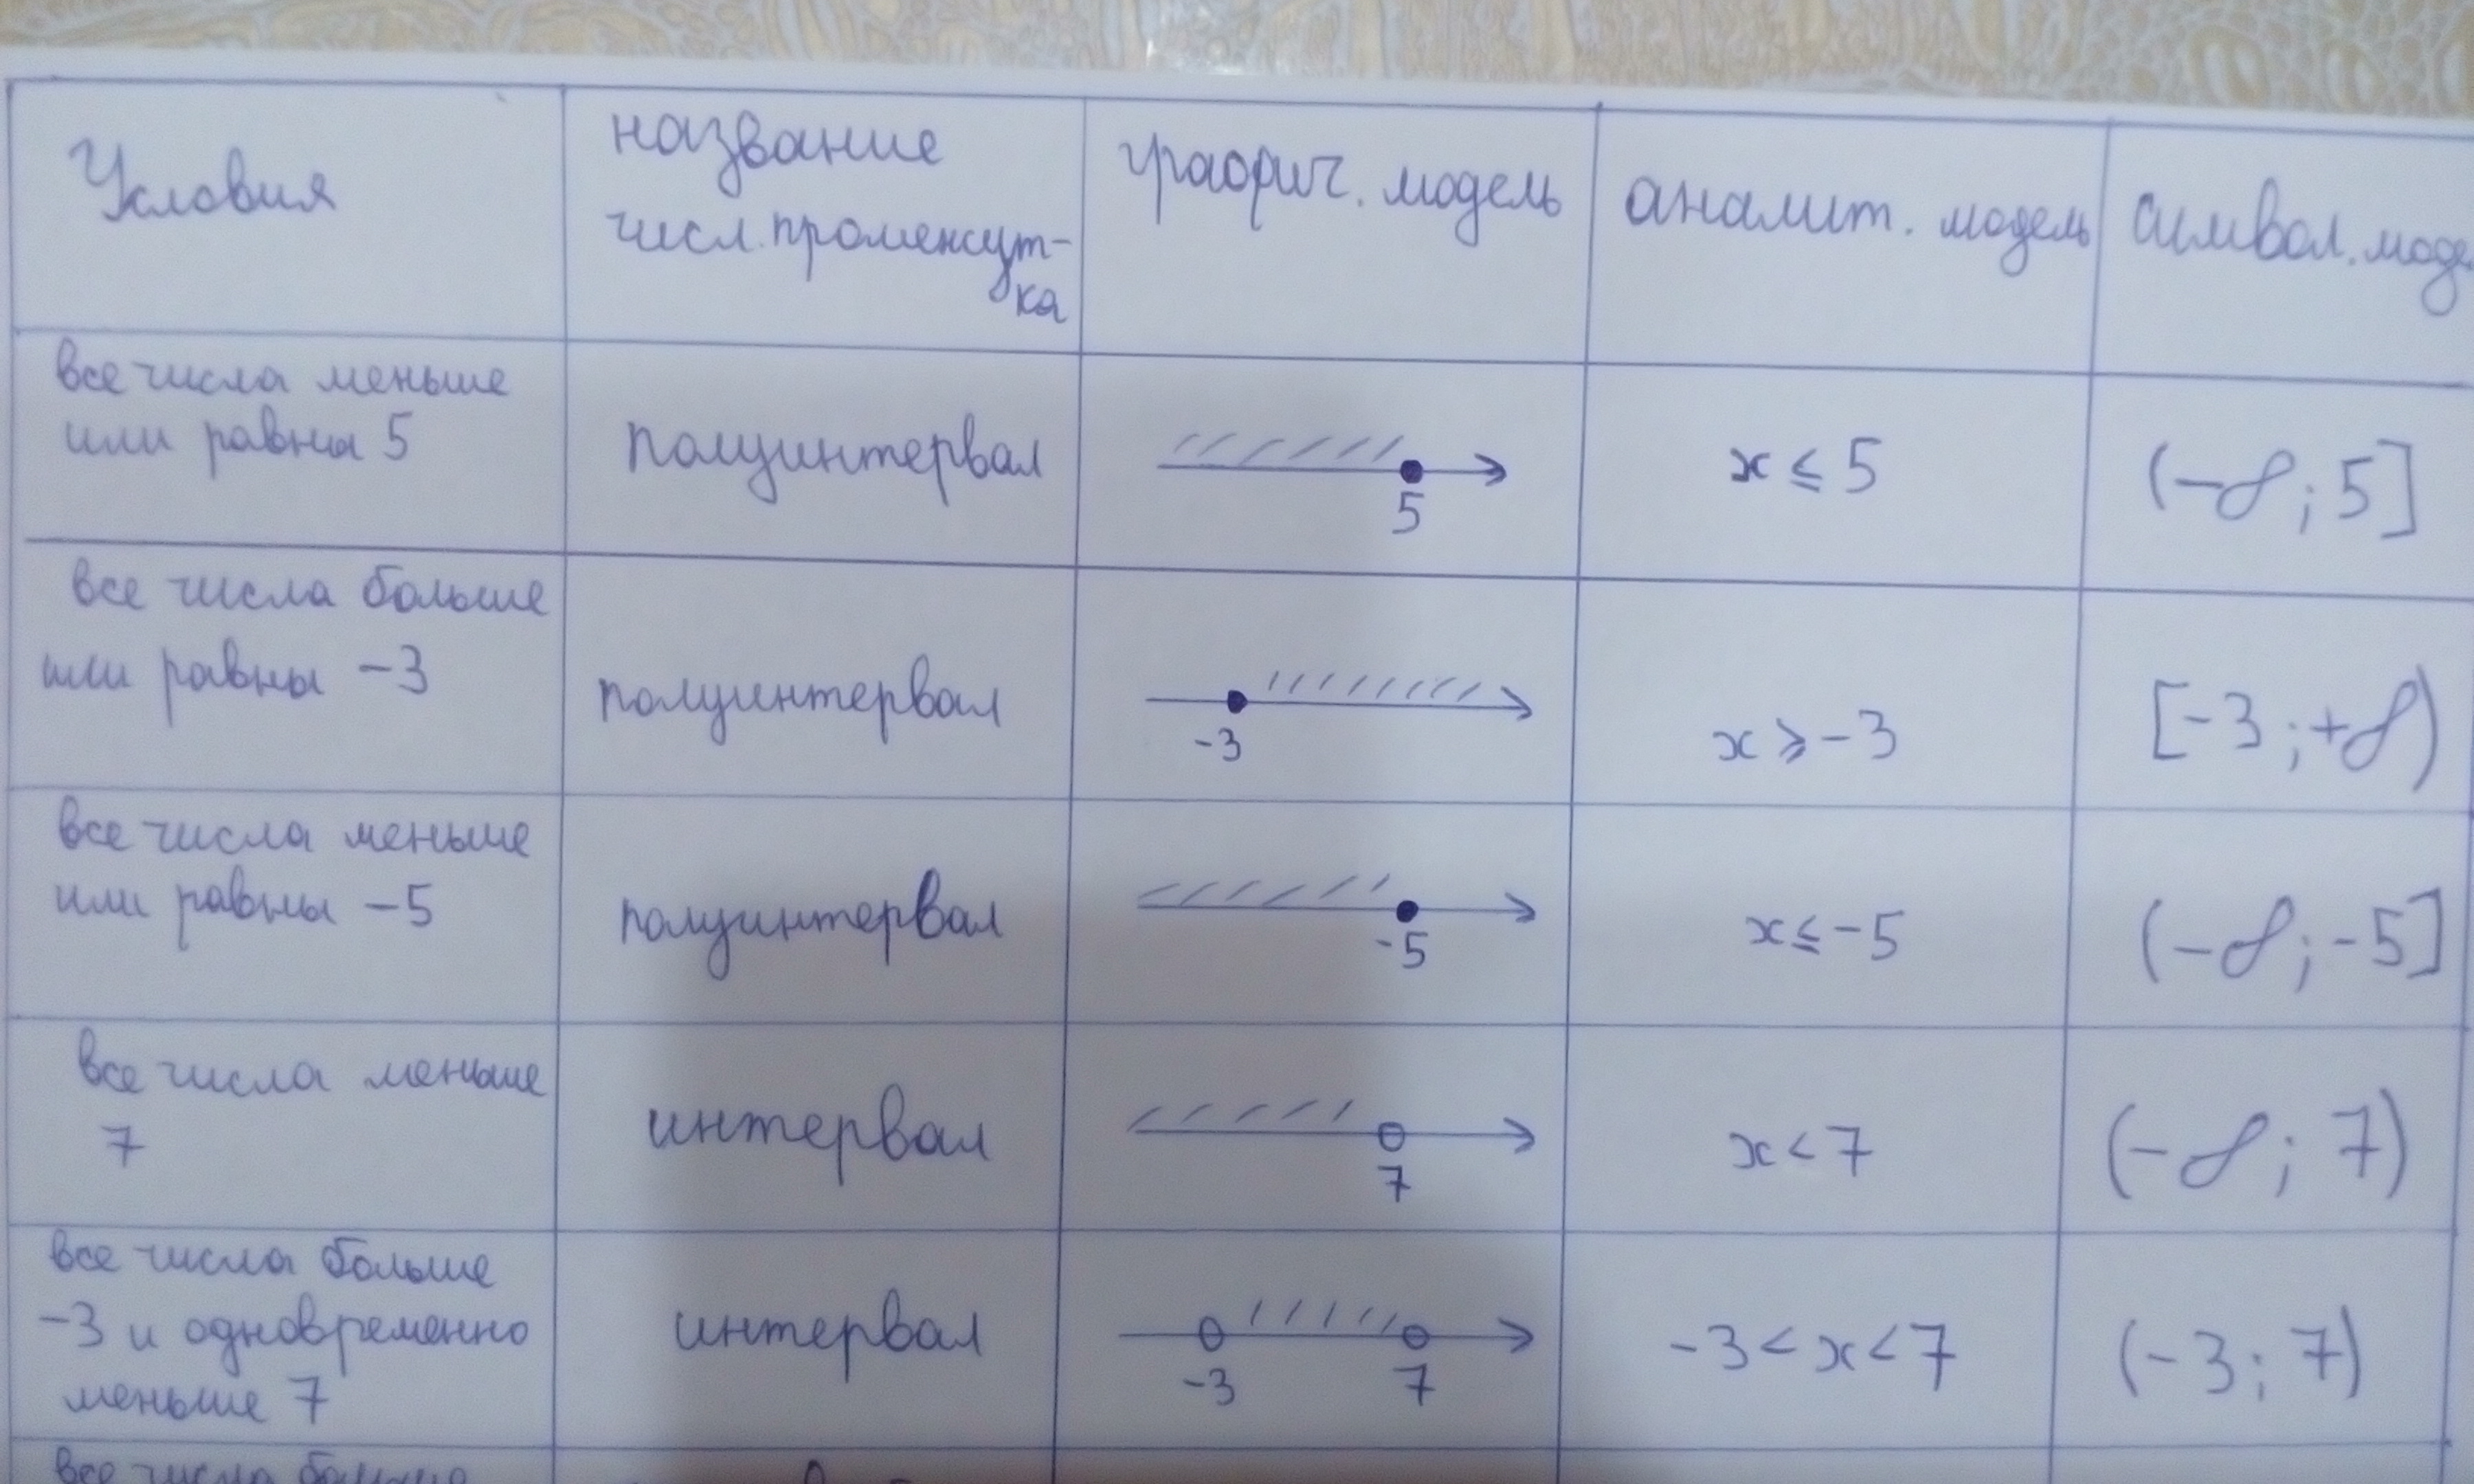 Условия
название
числ. промежут-
ка
графич. модель
аналит. модель
символ. моде
все числа меньше
или равны 5
полуинтервал
5
x ≤ 5
(-∞; 5]
все числа больше
или равны -3
полуинтервал
-3
x ⩾ -3
[-3; +∞)
все числа меньше
или равны -5
полуинтервал
-5
x ≤ -5
(-∞; -5]
все числа меньше
7
интервал
7
x < 7
(-∞; 7)
все числа больше
-3 и одновременно
меньше 7
интервал
-3 7
-3 < x < 7
(-3; 7)
все числа больше